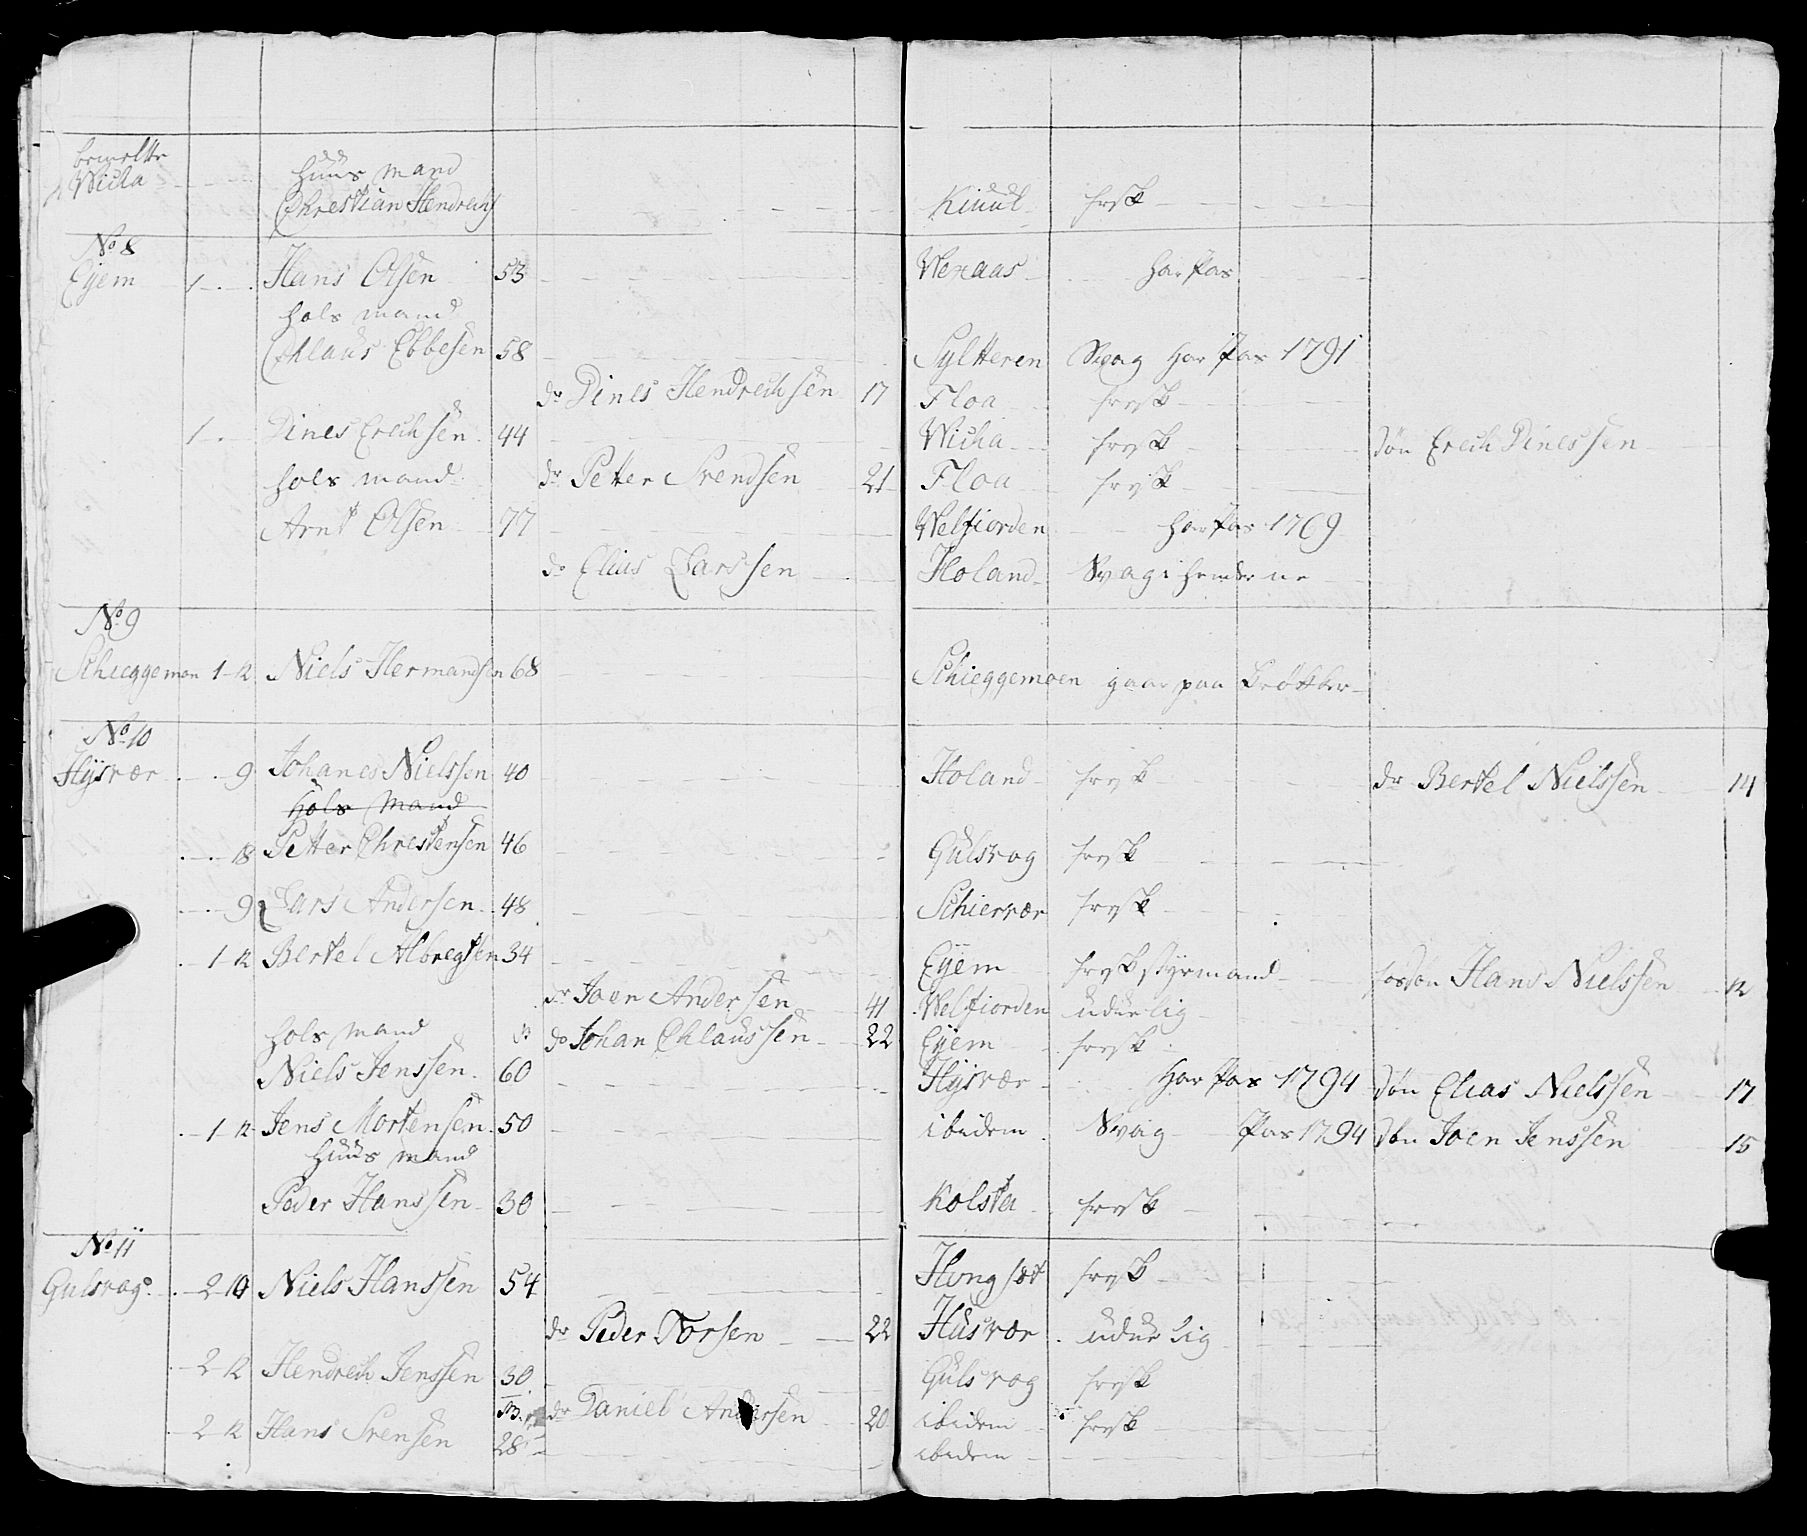 bemelte
Wicha
huus mand
Chrestian Hendrichs Kiuul frysk
No 8
Eyem 1 Hans Olsen 53 Weraas har Pas
hols mand
Chlaus Ebbesen 58 Sylteren Svag har Pas 1791
dr Dines Hendrechsen 17 Floa frysk
1 Dines Erechsen 44 Wicha frysk Søn Erech Dinessen
hols mand dr Petter Svendsen 21 Floa frysk
Arnt Olsen 77 Welfiorden har Pas 1769
do Elias Larssen Holand Svag i henderne
No 9
Schieggemoen 1 - 12 Niels Hermandsen 68 Schieggemoen gaar paa
No 10
Hysvær 9 Johanes Nielssen 40 Holand frysk dr Bertel Nielssen 14
hols mand
18 Petter Chrestensen 46 Gulsvog frysk
9 Lars Andersen 48 Schiervær frysk
1 - 12 Bertel Albregtsen 34 Eyem frysk styrmand Hans Nielssen 12
dr Joen Andersen 41 Welfiorden udue lig
hols mand do Johan Chlaussen 22 Eyem frysk
Niels Jenssen 60 Hysvær har Pas 1794 Søn Elias Nielssen 17
1 - 12 Jens Mortensen 50 ibidem Svag Pas 1794 Søn Joen Jenssen 15
huus mand
Peder Hanssen 30 Kolsta frysk
No 11
Gulsvog 2 Niels Hanssen 54 Hongsæt frysk
dr Peder Torsen 22 Husvær udue lig
2 - 12 Hendrech Jenssen 30 Gulsvog frysk
dr Daniel Andersen 20 ibidem frysk
2 - 12 Hans Svensen 28 ibidem